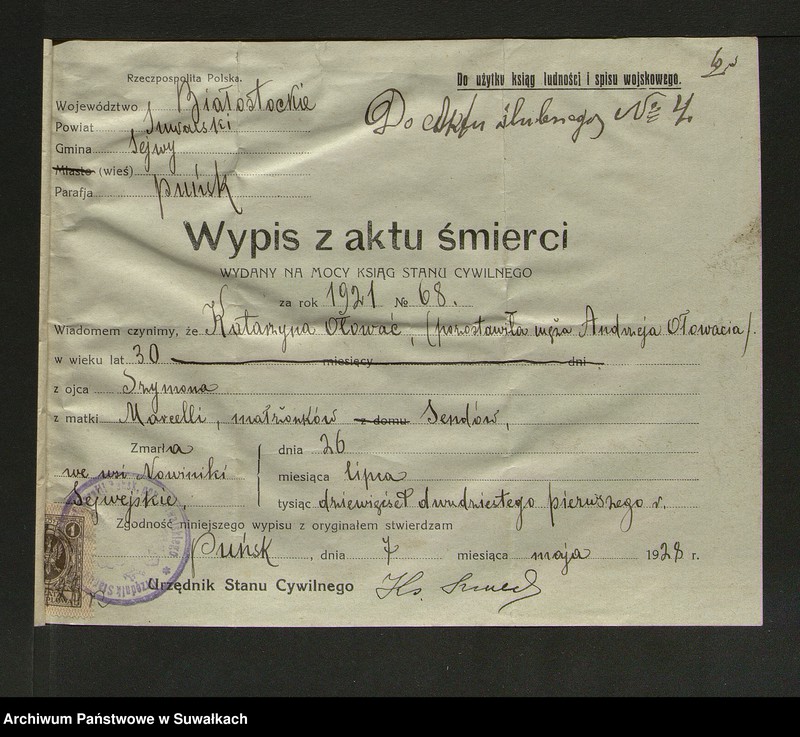 Rzeczpospolita Polska.
Do użytku ksiąg ludności i spisu wojskowego.
Województwo Białostockie
Do Aktu ślubnego № 4.
Powiat Suwalski
Gmina Sejwy
Miasto (wieś)
Parafja Puńsk
Wypis z aktu śmierci
WYDANY NA MOCY KSIĄG STANU CYWILNEGO
za rok 1921 № 68.
Wiadomem czynimy, że Katarzyna Ołować, (pozostawiła męża Andrzeja Ołowacia).
w wieku lat 30 miesięcy dni
z ojca Szymona
z matki Marcelli, małżonków z domu Sendów,
Zmarła dnia 26
we wsi Nowiniki miesiąca lipca
Sejwejskie, tysiąc dziewięćset dwudziestego pierwszego r.
Zgodność niniejszego wypisu z oryginałem stwierdzam
Puńsk, dnia 7 miesiąca maja 1928 r.
Urzędnik Stanu Cywilnego Ks.
1
Archiwum Państwowe w Suwałkach